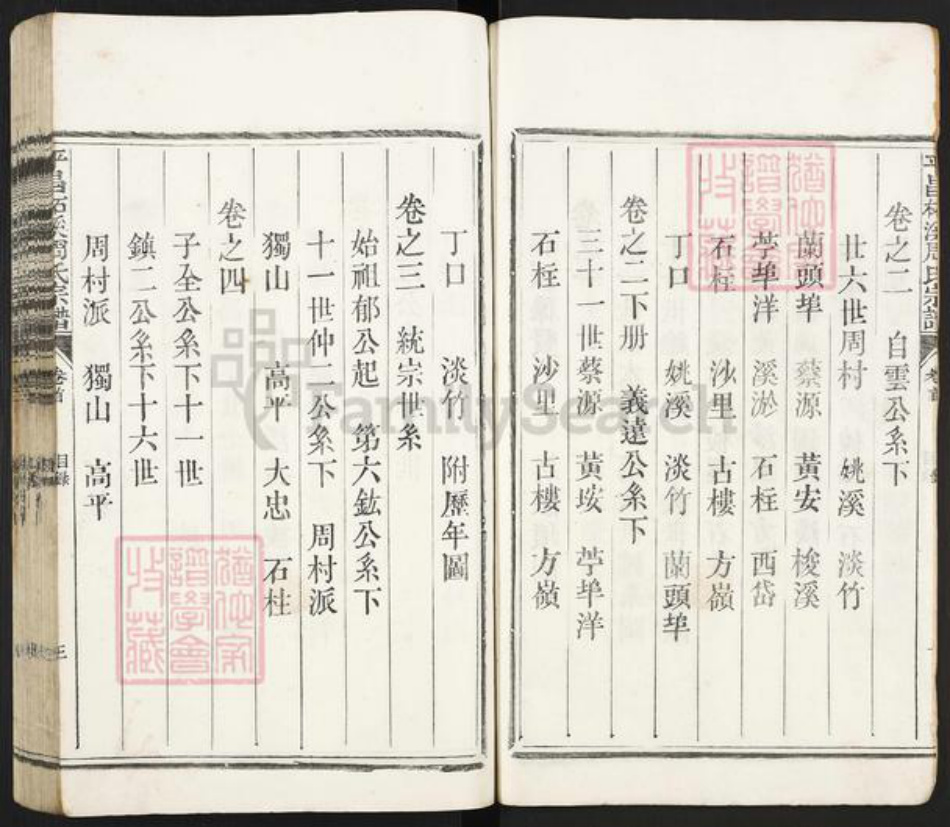 卷之二 自雲公系下
廿六世周村 姚溪 淡竹
蘭頭埠 蔡源 黃安 梭溪
苧埠洋 溪淤 石柱 西岱
石柱 沙里 古樓 方嶺
丁口 姚溪 淡竹 蘭頭埠
卷之二下册 義遠公系下
三十一世蔡源 黃垵 苧埠洋
石柱 沙里 古樓 方嶺
丁口 淡竹 附歷年圖
卷之三 統宗世系
始祖郁公起 第六鈜公系下
十一世仲二公系下 周村派
獨山 高平 大忠 石柱
卷之四
子全公系下十一世
鎮二公系下十六世
周村派 獨山 高平
周氏宗譜
卷首
目録
三
FamilySearch